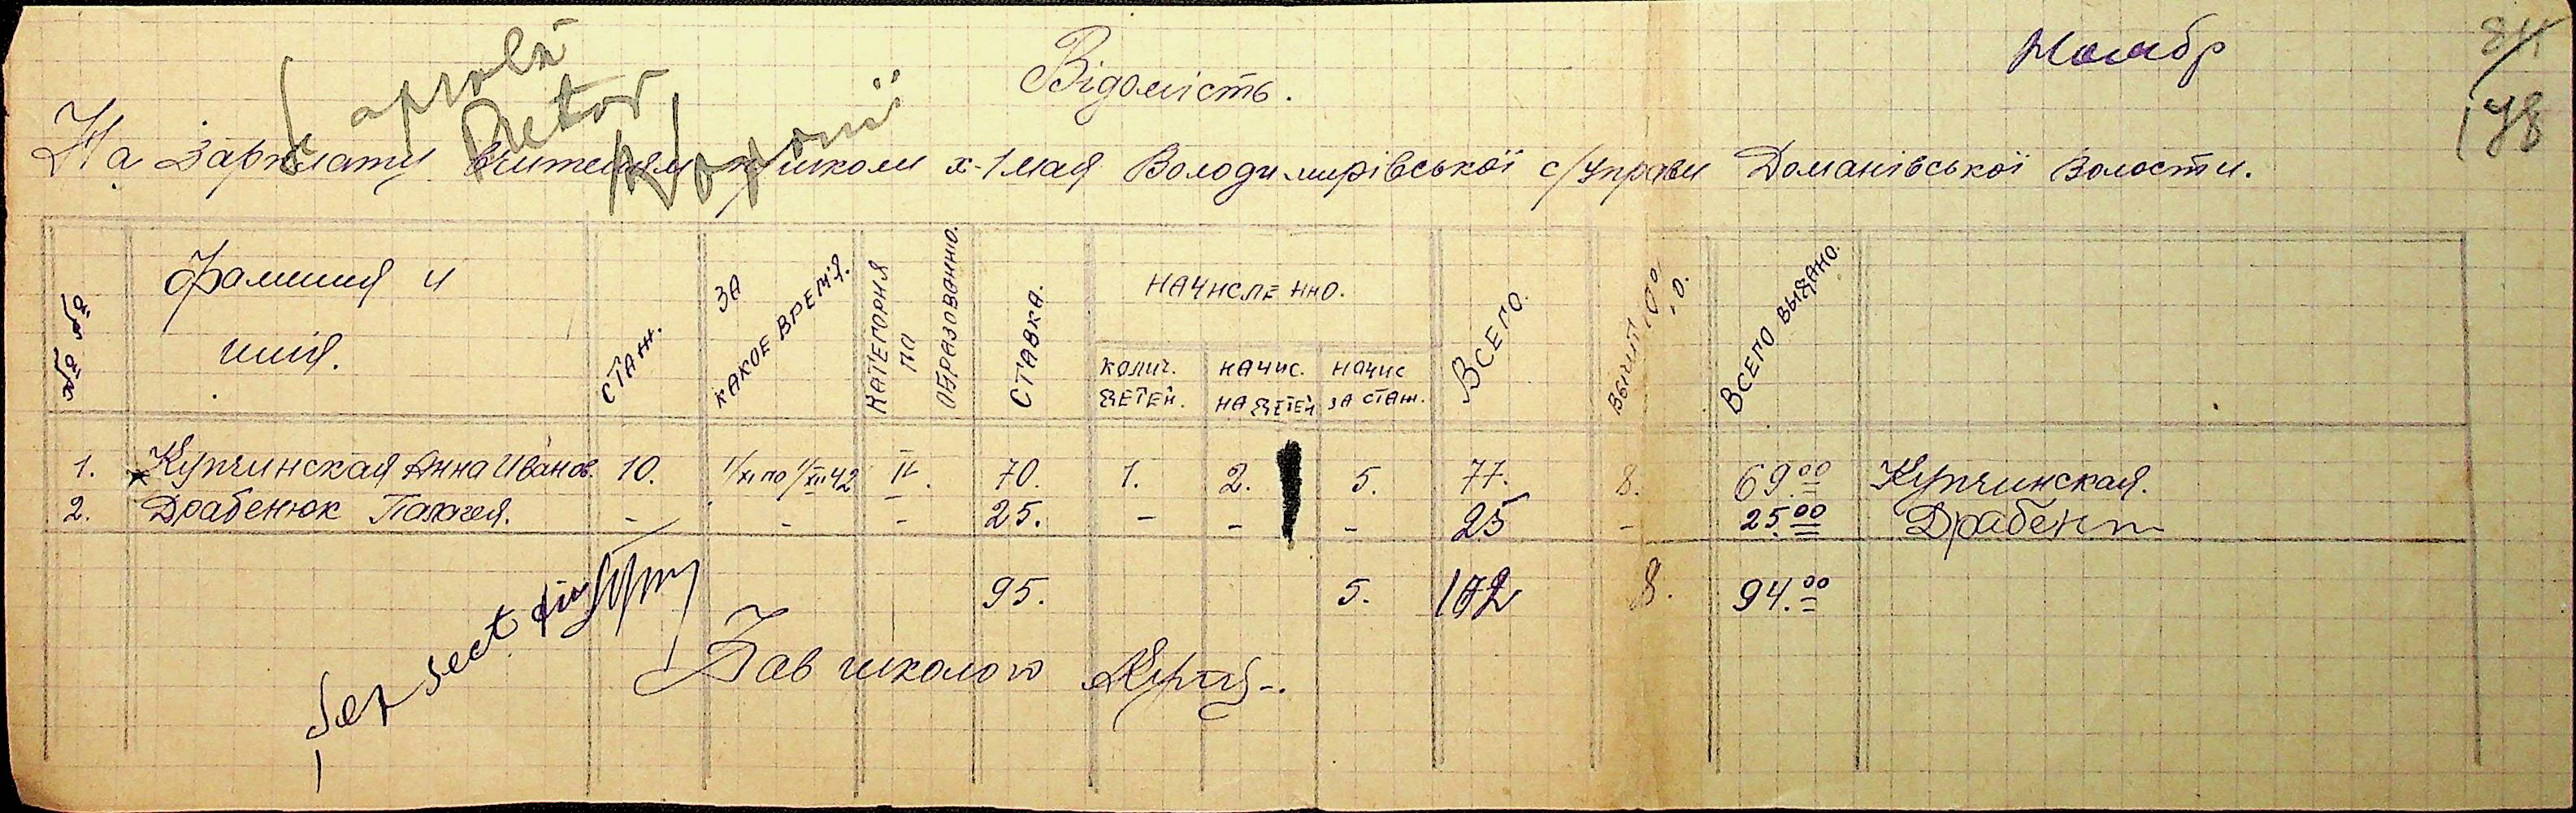 Ноябр
Відомість.
178
На зарплату вчителям п/школи х-1 мая Володимирівської с/управи Доманівської волости.
Фамилия и
имя.
СТАЖ.
ЗА
КАКОЕ ВРЕМЯ.
КАТЕГОРИЯ
ПО
ОБРАЗОВАННЮ.
СТАВКА.
НАЧИСЛЕННО.
КОЛИЧ.
ДЕТЕЙ.
НАЧИС.
НА ДЕТЕЙ
НАЧИС
ЗА СТАЖ.
ВСЕГО.
ВЫЧИТ 10%
ВСЕГО ВЫДАНО.
1. Купчинская Анна Иванов. 10. 1/XI по 1/XII 42 II. 70. 1. 2. 5. 77. 8. 69.00 Купчинская.
2. Драбенюк Палагея. - - - 25. - - - 25 - 25.00 Драбенюк
95. 5. 102 8. 94.00
Зав школою